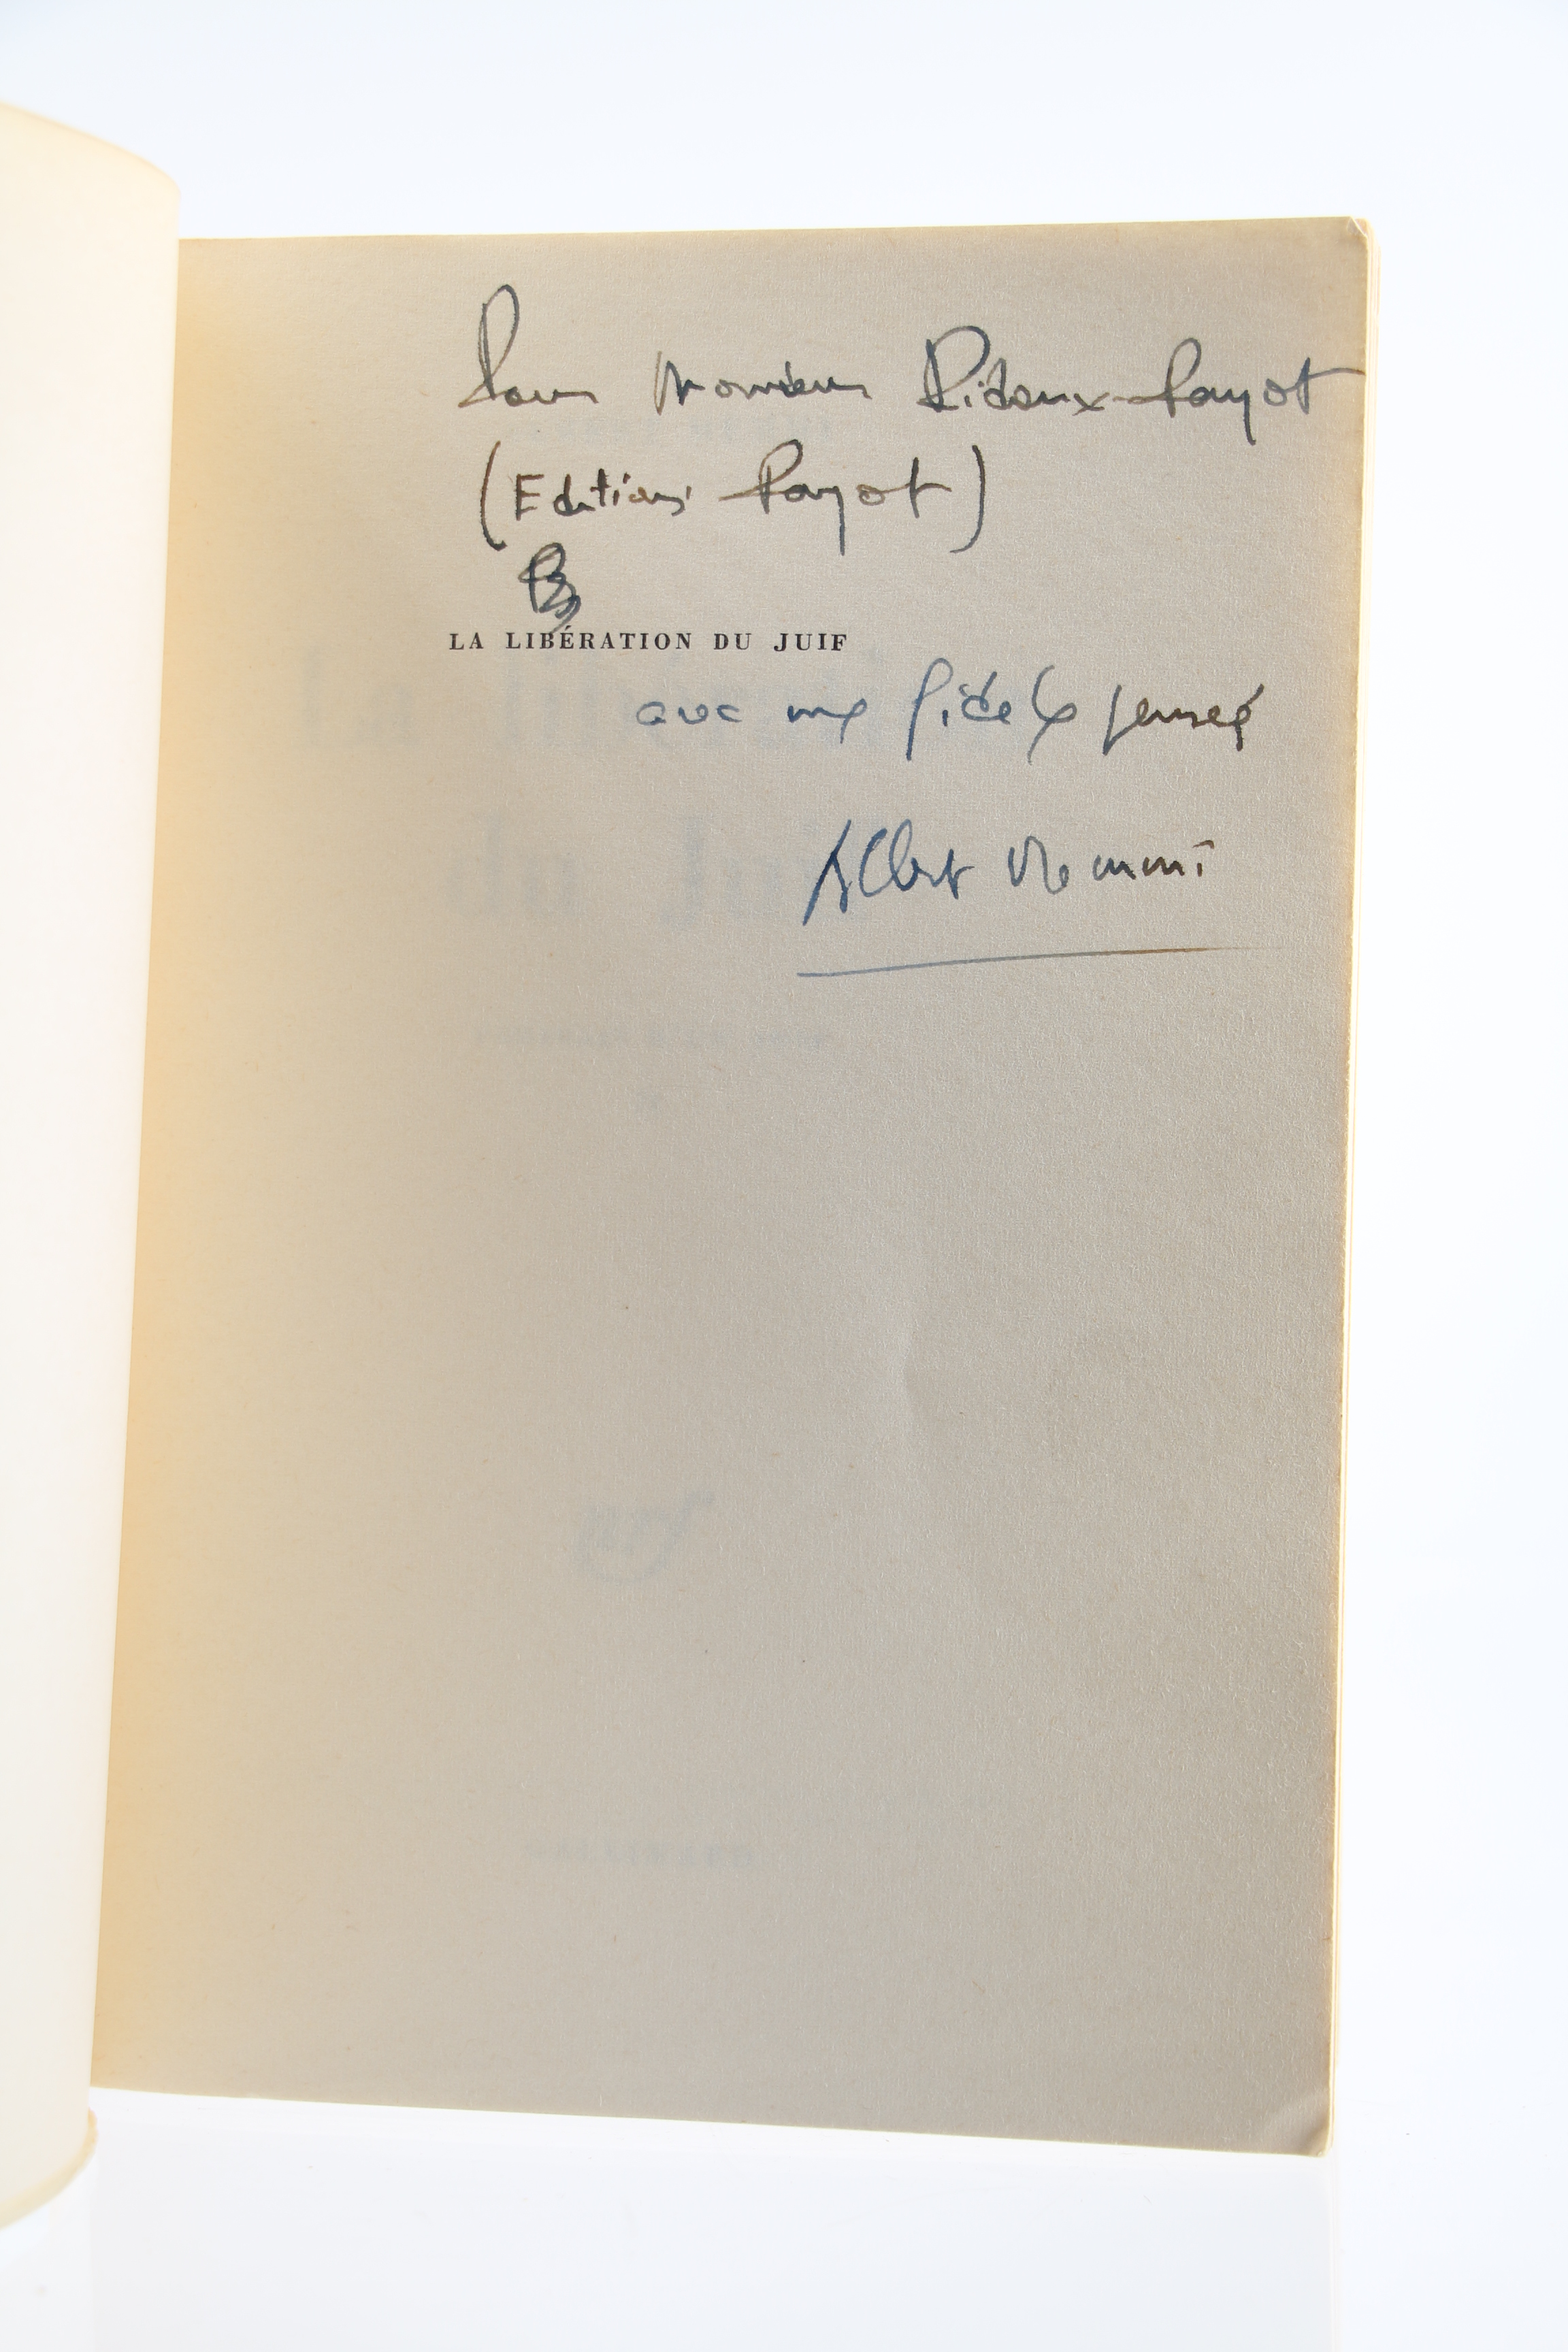 Pour Monsieur Pidoux-Payot
(Editions Payot)
LA LIBÉRATION DU JUIF
avec ma fidèle pensée
Albert Memmi